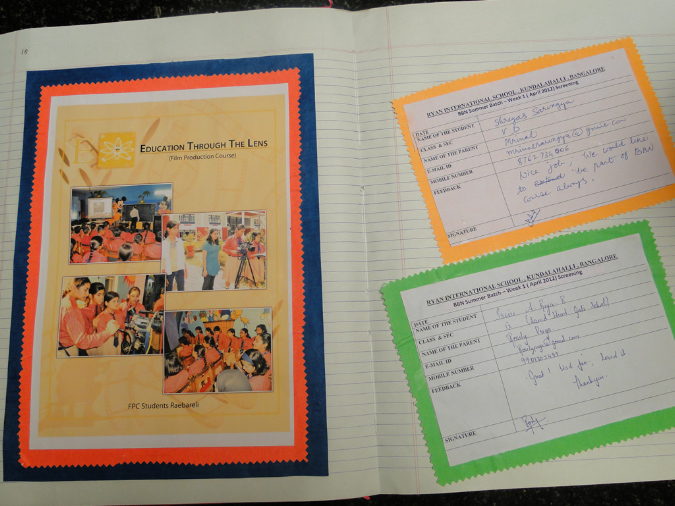 18
EDUCATION THROUGH THE LENS
(Film Production Course)
FPC Students Raebareli
RYAN INTERNATIONAL SCHOOL, KUNDALAHALLI, BANGALORE
BGN Summer Batch – Week 1 (April 2012) Screening
DATE
NAME OF THE STUDENT Shreyas Sarangya
CLASS & SEC V D
NAME OF THE PARENT Mrinal
E-MAIL ID
MOBILE NUMBER
FEEDBACK Nice job. We would like
to be part of BGN
course always.
SIGNATURE
RYAN INTERNATIONAL SCHOOL, KUNDALAHALLI, BANGALORE
BGN Summer Batch – Week 1 (April 2012) Screening
DATE
NAME OF THE STUDENT
CLASS & SEC
NAME OF THE PARENT
E-MAIL ID
MOBILE NUMBER
FEEDBACK Good! had fun, loved it
Thankyou
SIGNATURE